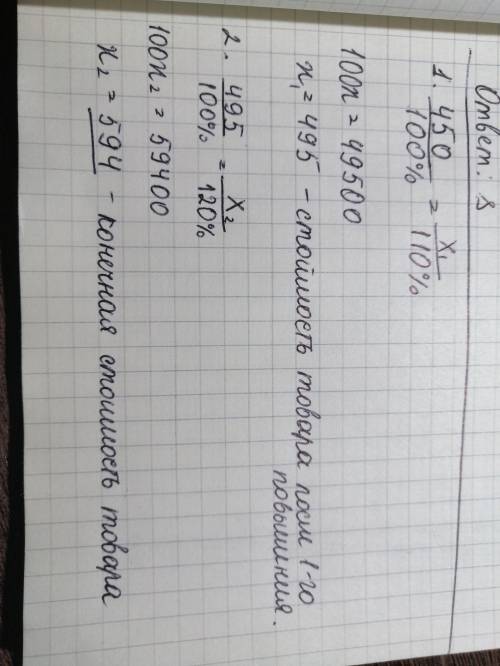 Ответ: 8
1. 450/100% = x₁/110%
100x = 49500
x₁ = 495 - стоймость товара после 1-го
повышения.
2. 495/100% = x₂/120%
100x₂ = 59400
x₂ = 594 - конечная стоимость товара